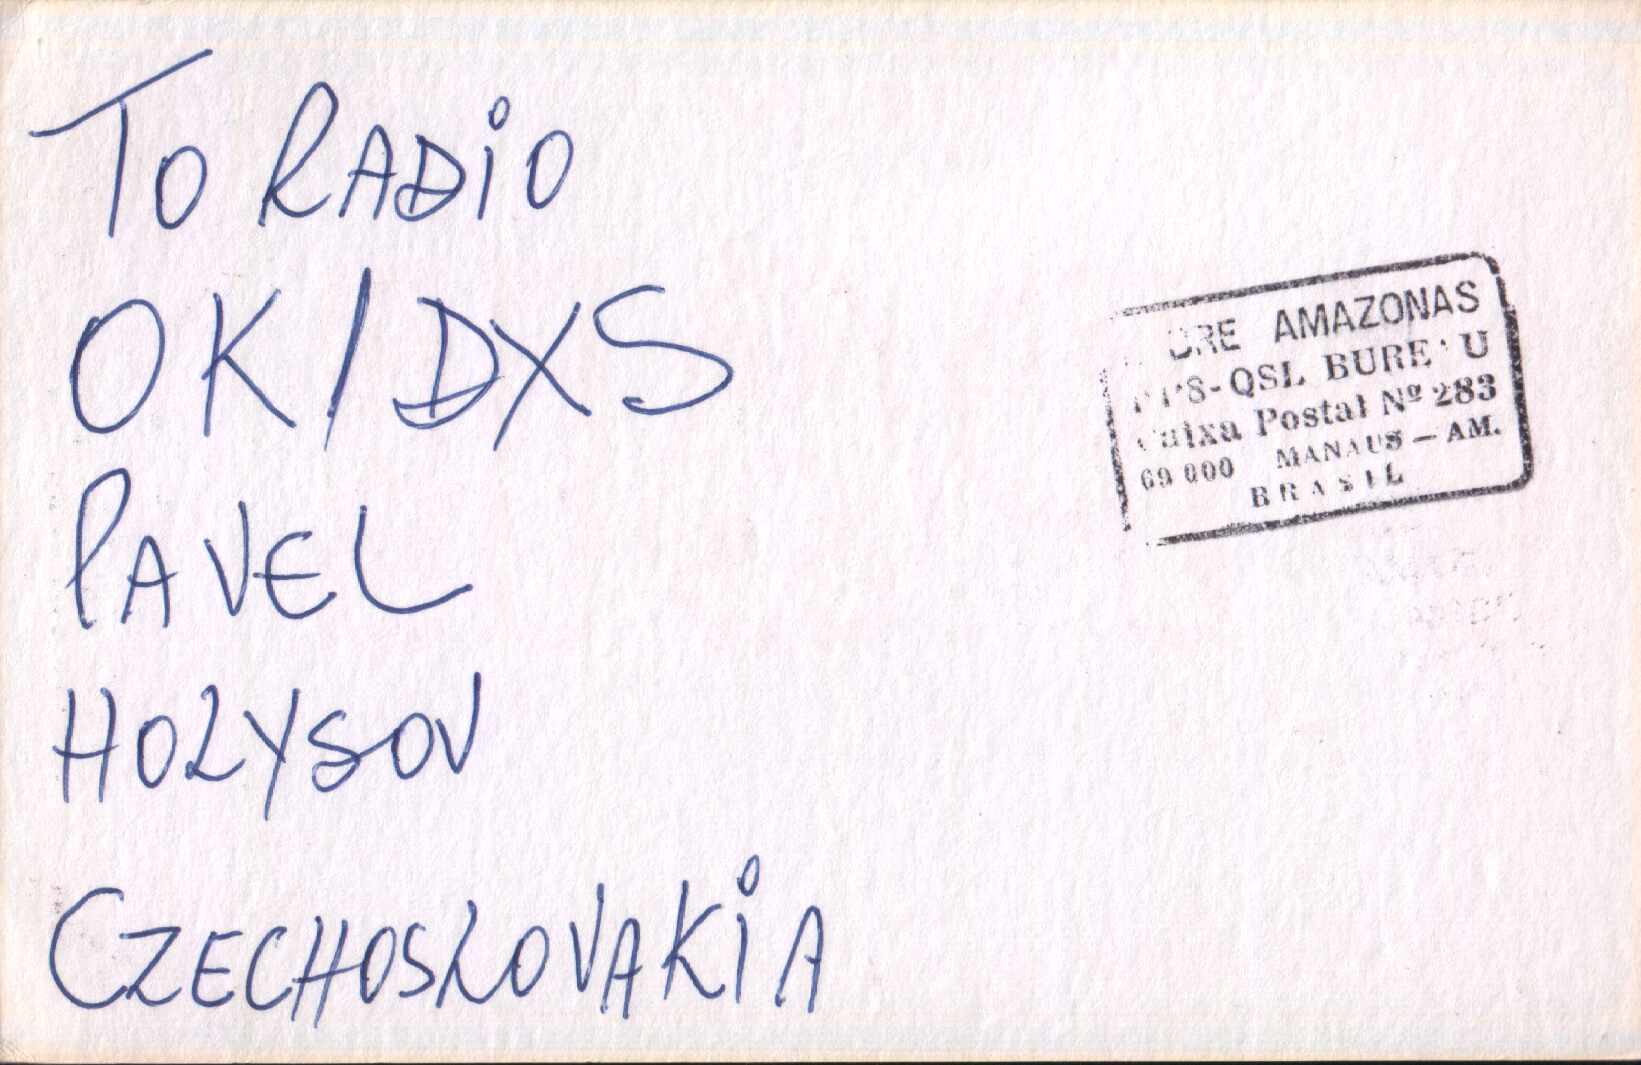 TO RADIO
OK1DXS
PAVEL
HOLYSOV
CZECHOSLOVAKIA
AMAZONAS
QSL BUREAU
Caixa Postal Nº 283
69 000 MANAUS — AM.
BRASIL